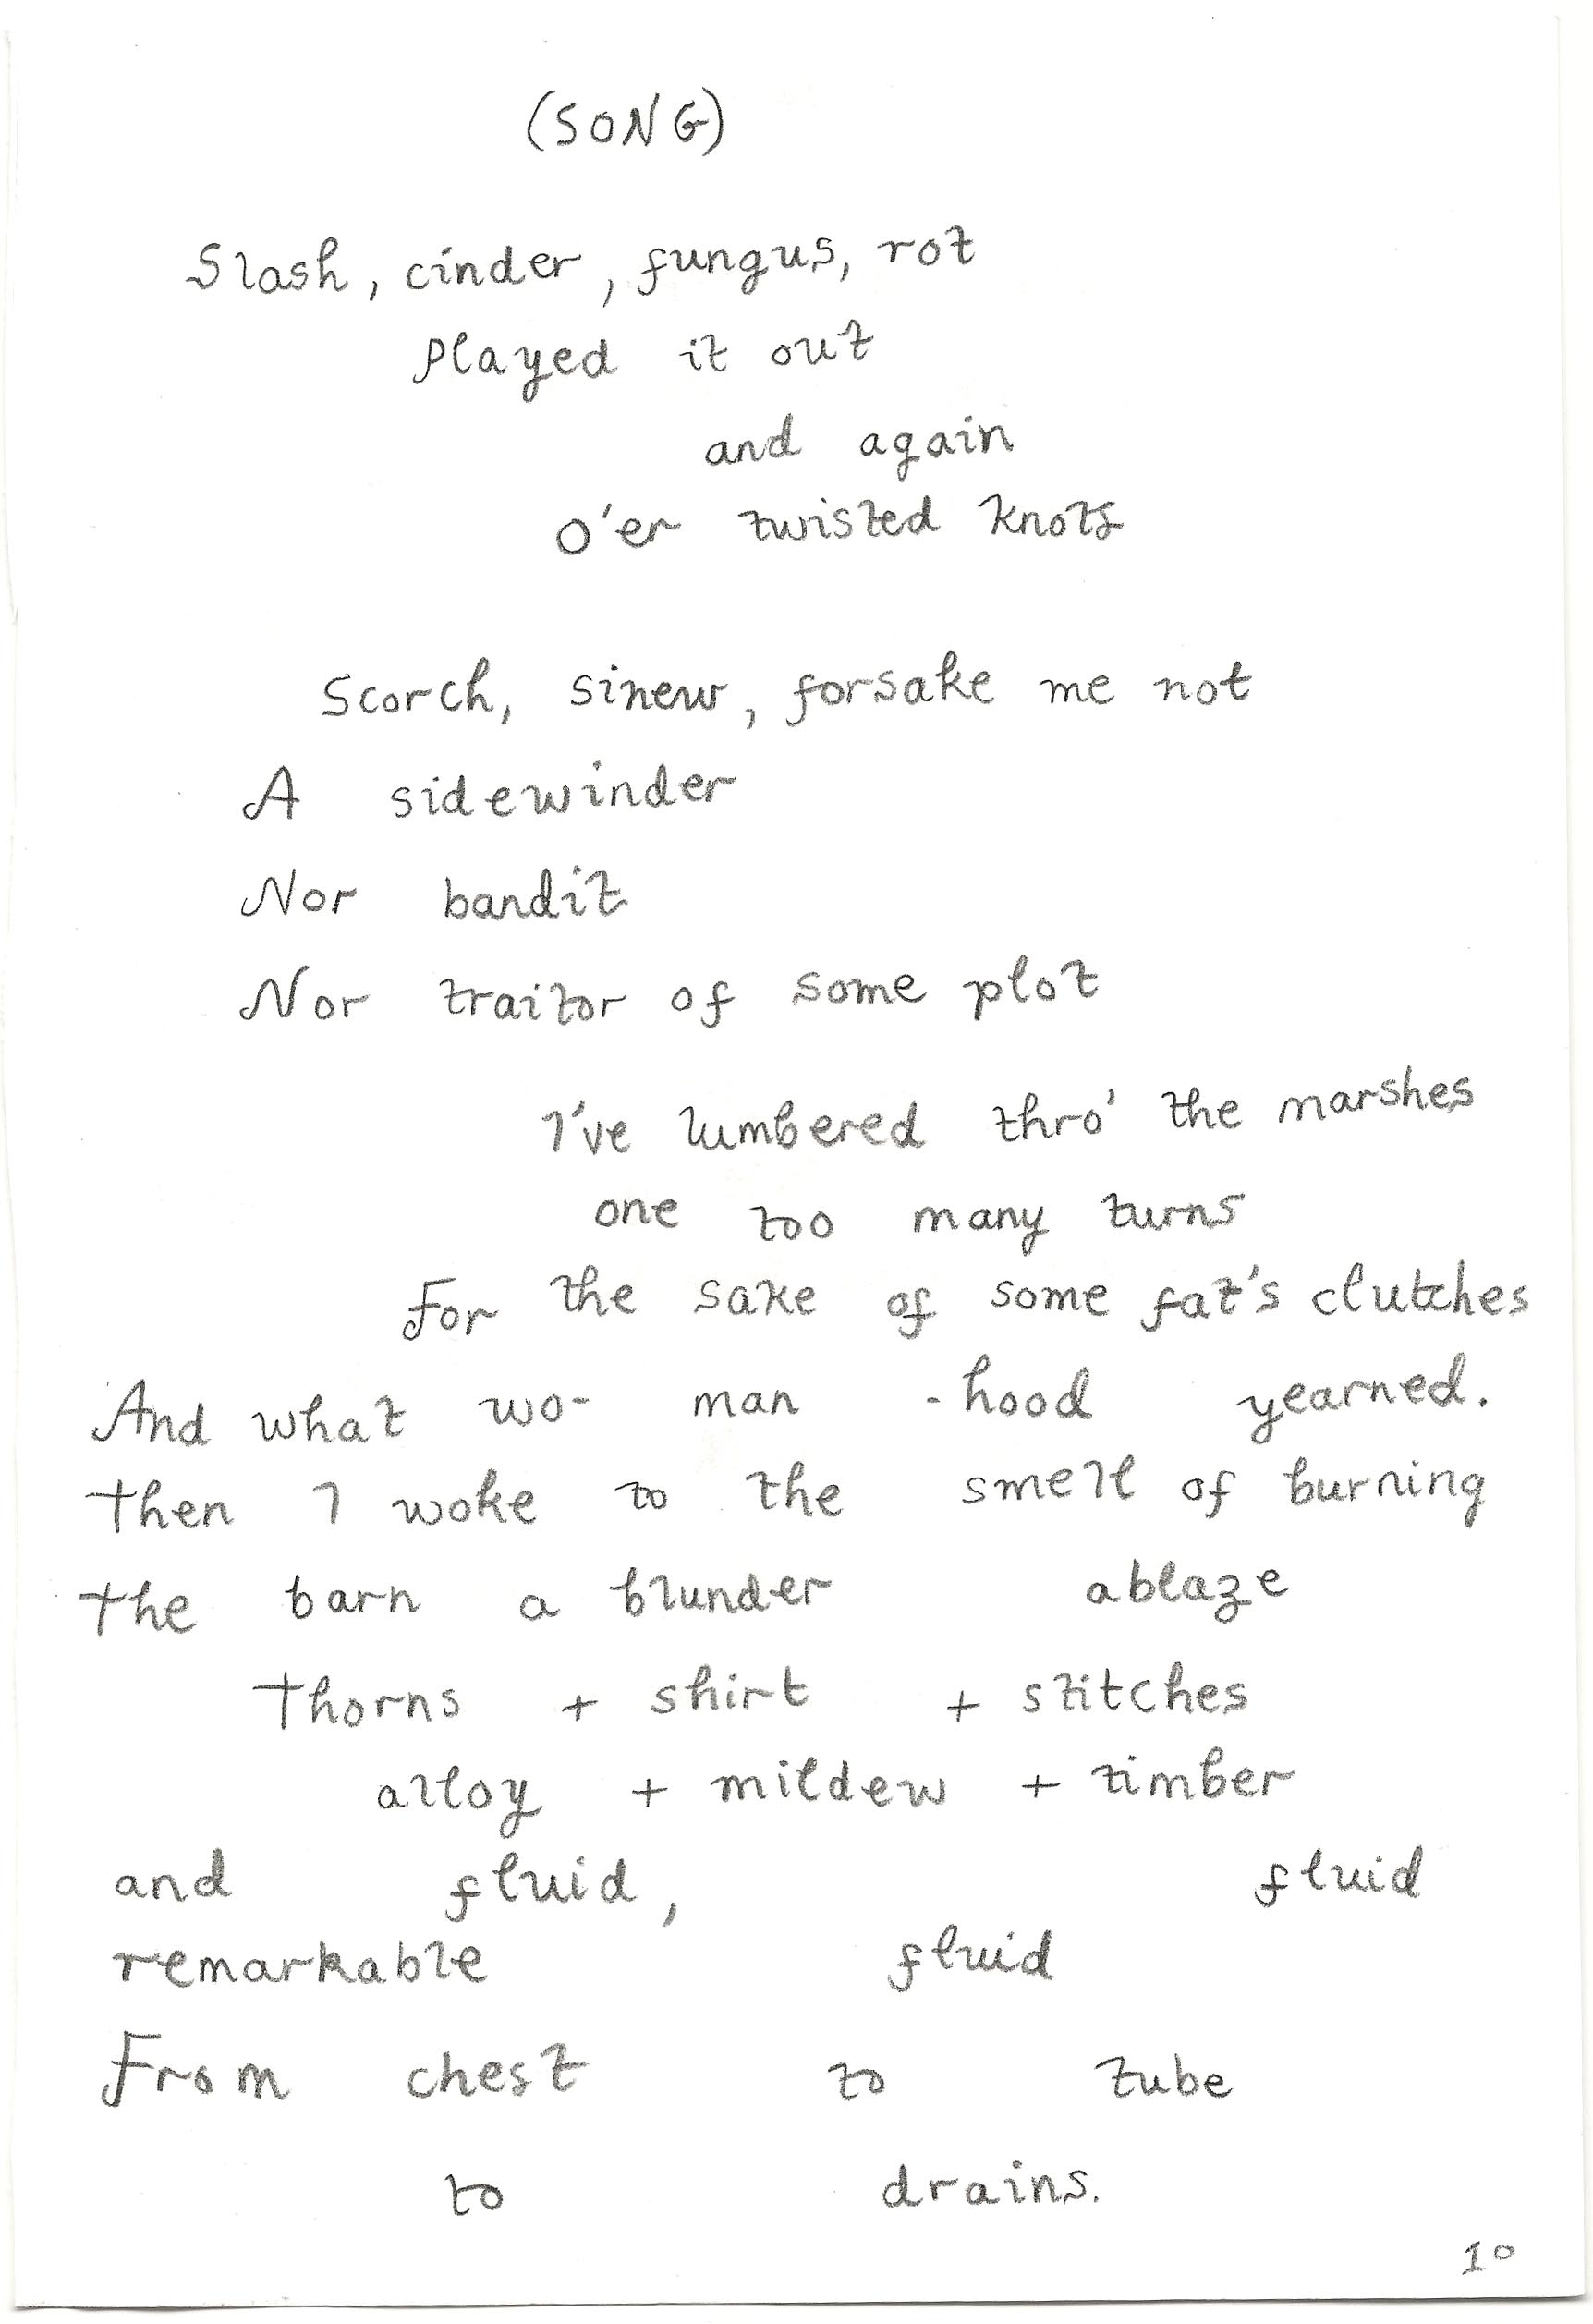 (SONG)
Slash, cinder, fungus, rot
Played it out
and again
O'er twisted knots
Scorch, sinew, forsake me not
A sidewinder
Nor bandit
Nor traitor of some plot
I've lumbered thro' the marshes
one too many turns
For the sake of some fat's clutches
And what wo- man -hood yearned.
Then I woke to the smell of burning
The barn a blunder ablaze
Thorns + shirt + stitches
alloy + mildew + timber
and fluid, fluid
remarkable fluid
From chest to tube
to drains.
10